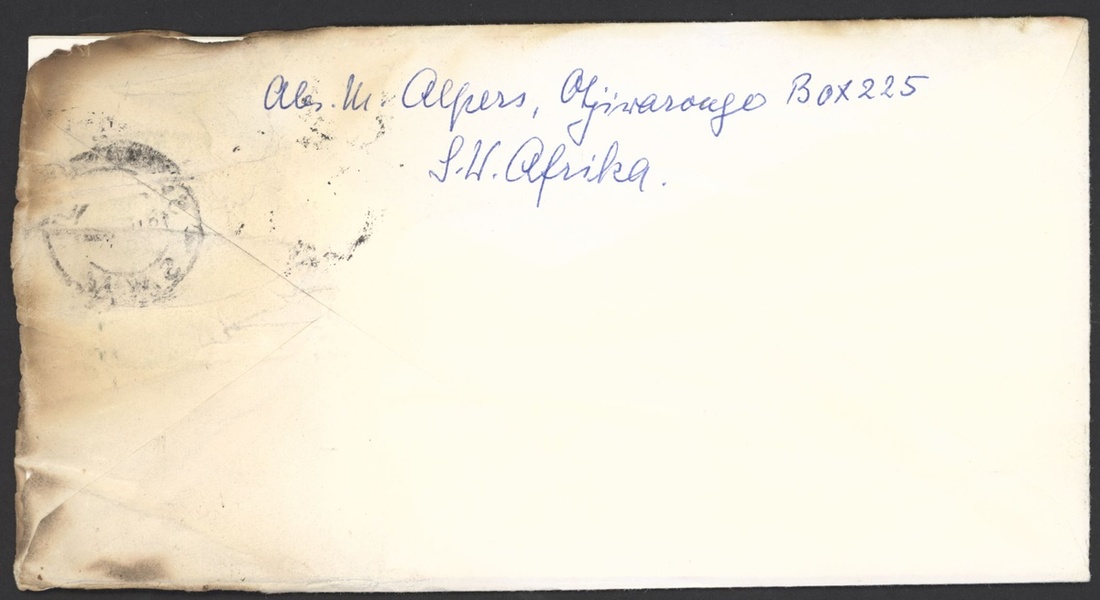 Abs. M. Alpers, Otjiwarongo Box 225
S.W. Afrika.